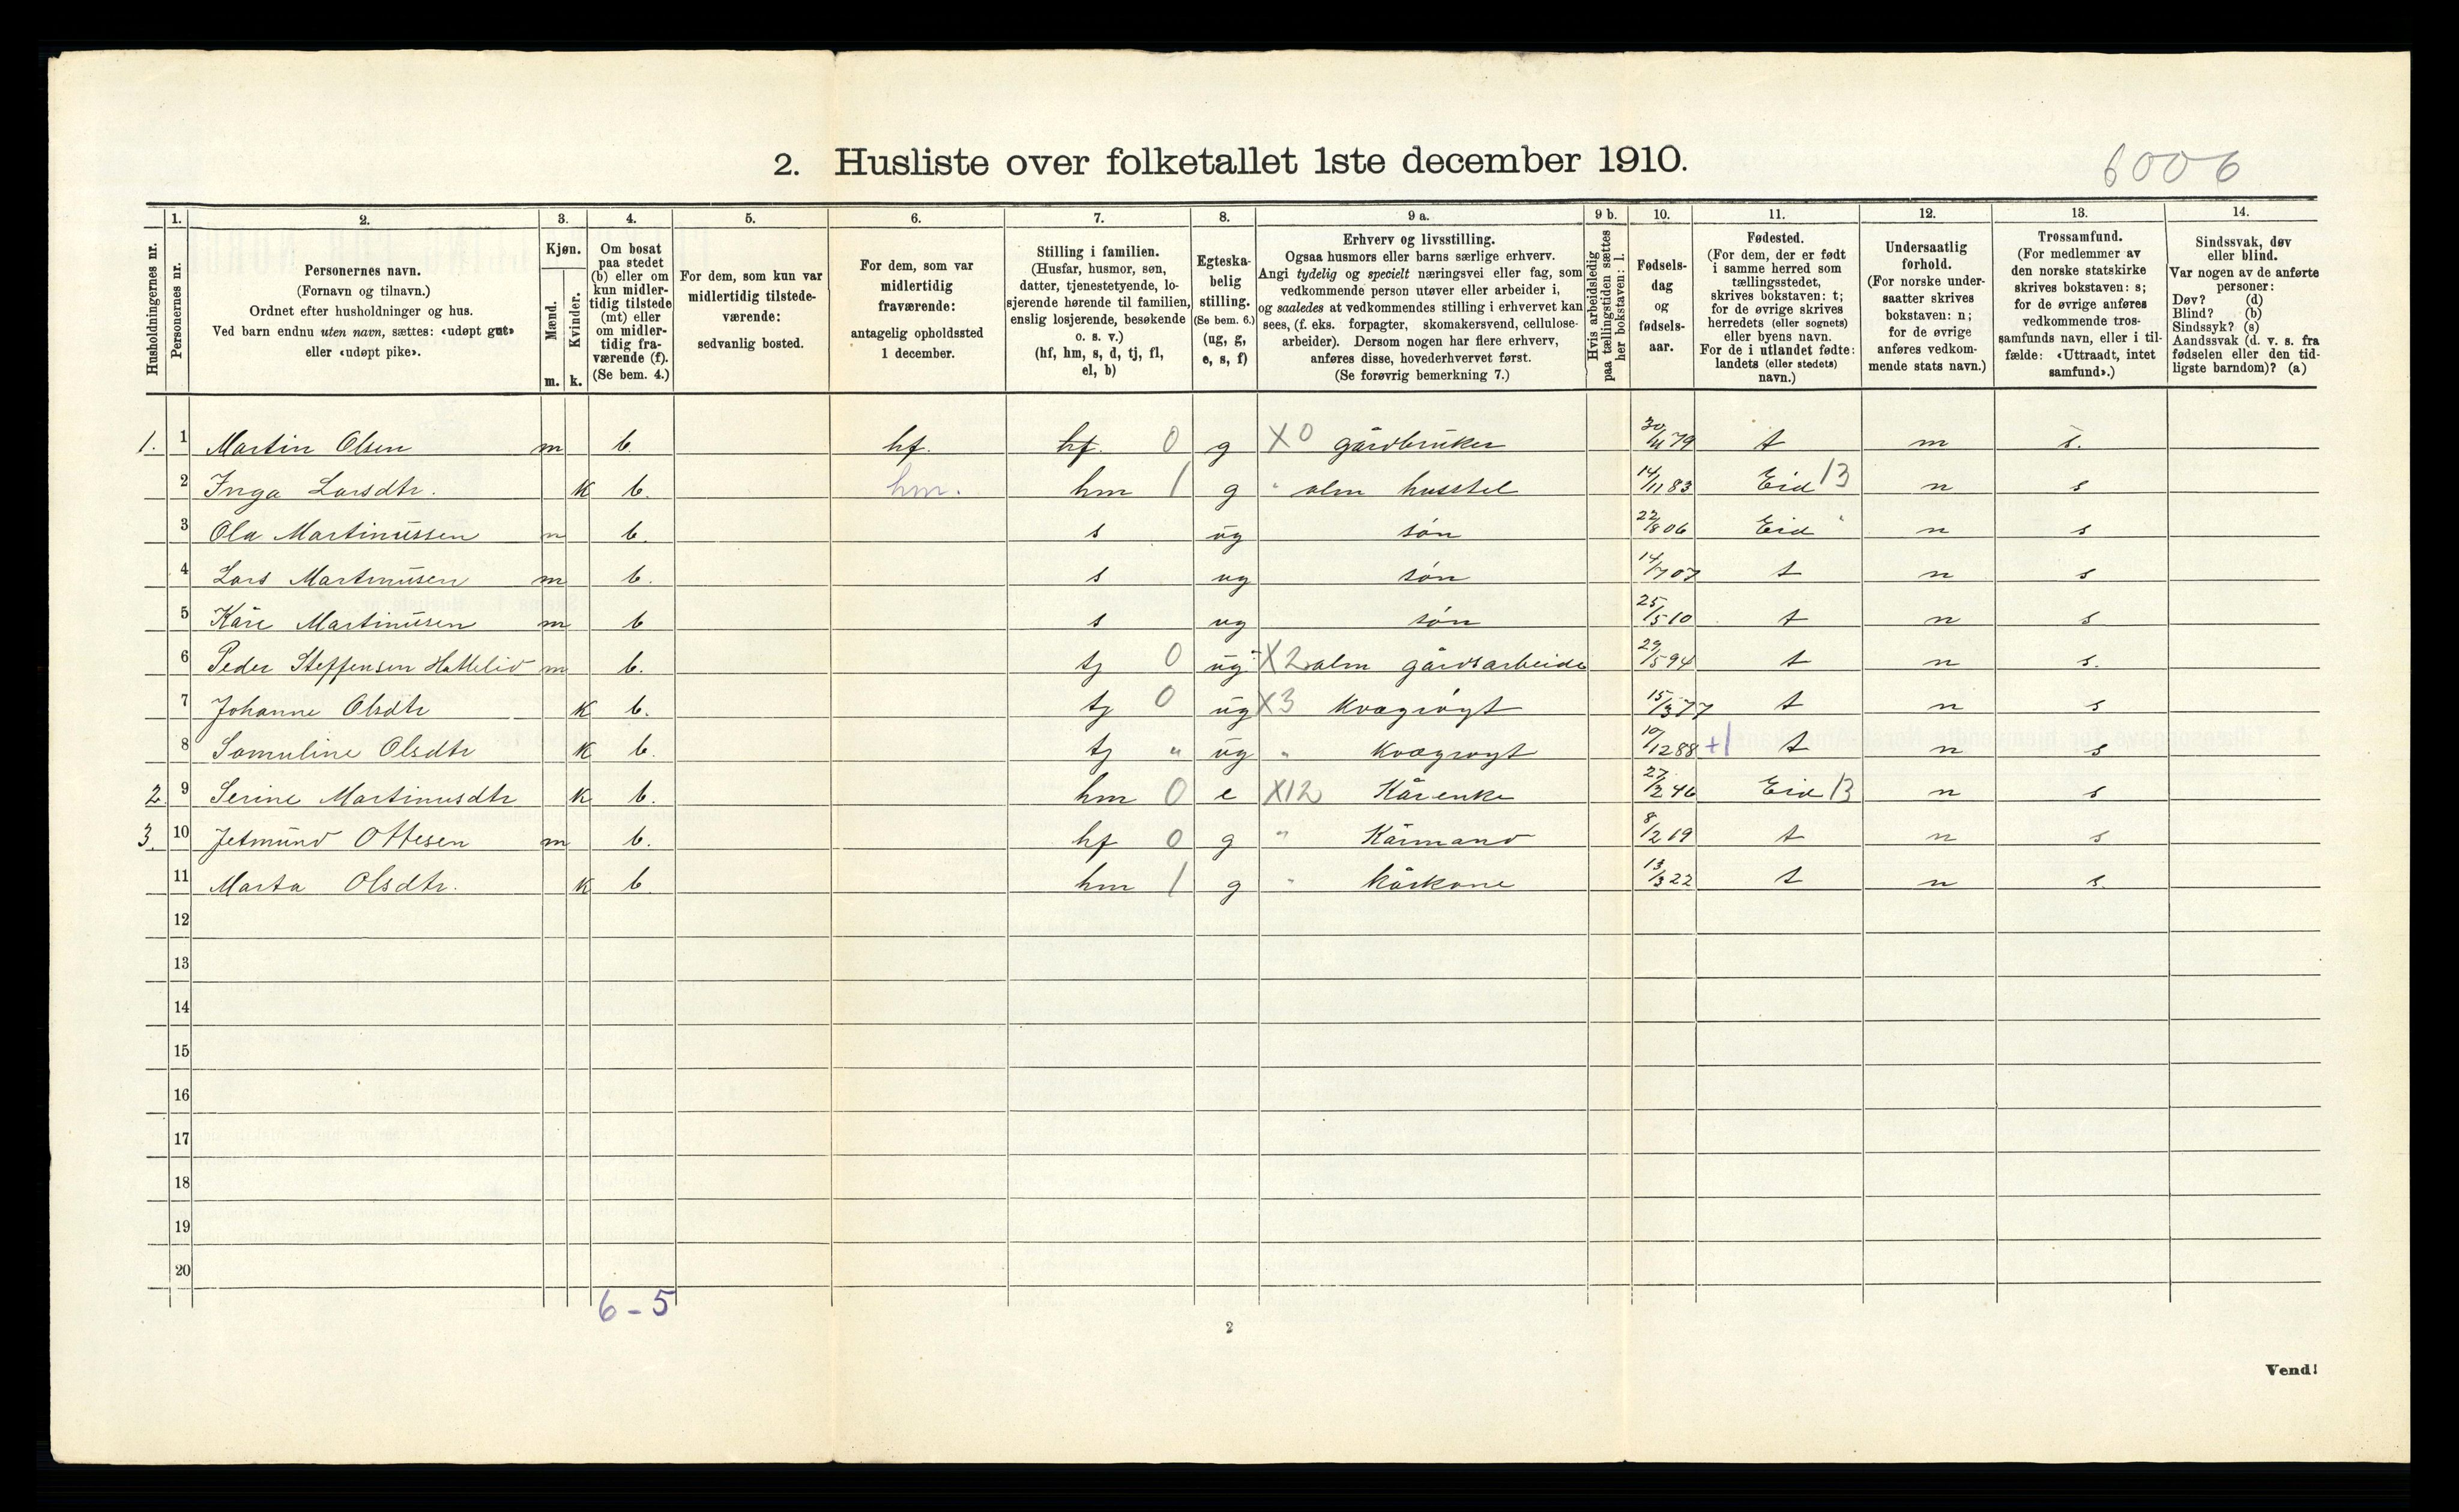 2. Husliste over folketallet 1ste december 1910.
6006
Husholdningernes nr.
1. Personernes nr.
2. Personernes navn.
(Fornavn og tilnavn.)
Ordnet efter husholdninger og hus.
Ved barn endnu uten navn, sættes: «udøpt gut»
eller «udøpt pike».
3. Kjøn.
Mænd. m.
Kvinder. k.
4. Om bosat
paa stedet
(b) eller om
kun midler-
tidig tilstede
(mt) eller
om midler-
tidig fra-
værende (f).
(Se bem. 4.)
5. For dem, som kun var
midlertidig tilstede-
værende:
sedvanlig bosted.
6. For dem, som var
midlertidig
fraværende:
antagelig opholdssted
1 december.
7. Stilling i familien.
(Husfar, husmor, søn,
datter, tjenestetyende, lo-
sjerende hørende til familien,
enslig losjerende, besøkende
o. s. v.)
(hf, hm, s, d, tj, fl,
el, b)
8. Egteska-
belig
stilling.
(Se bem. 6.)
(ug, g,
e, s, f)
9 a. Erhverv og livsstilling.
Ogsaa husmors eller barns særlige erhverv.
Angi tydelig og specielt næringsvei eller fag, som
vedkommende person utøver eller arbeider i,
og saaledes at vedkommendes stilling i erhvervet kan
sees, (f. eks. forpagter, skomakersvend, cellulose-
arbeider). Dersom nogen har flere erhverv,
anføres disse, hovederhvervet først.
(Se forøvrig bemerkning 7.)
9 b. Hvis arbeidsledig
paa tællingstiden sættes
her bokstaven: l.
10. Fødsels-
dag
og
fødsels-
aar.
11. Fødested.
(For dem, der er født
i samme herred som
tællingsstedet,
skrives bokstaven: t;
for de øvrige skrives
herredets (eller sognets)
eller byens navn.
For de i utlandet fødte:
landets (eller stedets)
navn.)
12. Undersaatlig
forhold.
(For norske under-
saatter skrives
bokstaven: n;
for de øvrige
anføres vedkom-
mende stats navn.)
13. Trossamfund.
(For medlemmer av
den norske statskirke
skrives bokstaven: s;
for de øvrige anføres
vedkommende tros-
samfunds navn, eller i til-
fælde: «Uttraadt, intet
samfund».)
14. Sindssvak, døv
eller blind.
Var nogen av de anførte
personer:
Døv? (d)
Blind? (b)
Sindssyk? (s)
Aandssvak (d. v. s. fra
fødselen eller den tid-
ligste barndom)? (a)
1. 1 Martin Olsen m b. hf. hf. 0 g X0 gårdbruker 30/4 79 t m s.
2 Inga Larsdtr. k b. hm. hm 1 g " alm husstel 14/11 83 Eid 13 n s
3 Ola Martinussen m b. s ug søn 22/8 06 Eid " n s
4 Lars Martinusen m b. s ug søn 14/7 07 t n s
5 Kåre Martinusen m b s ug søn 25/5 10 t n s
6 Peder Steffensen Hattelid m b. tj 0 ug X2 alm gårdsarbeide 29/5 94 t n s.
7 Johanne Olsdtr k b. tj 0 ug X3 Kvægrøgt 15/3 77 t n s
8 Samuline Olsdtr k b. tj " ug " Kvægrøgt 10/12 88 +1 t n s
2. 9 Serine Martinusdtr k b. hm 0 e X12 Kårenke 27/2 46 Eid 13 n s
3. 10 Jetmund Ottesen m b. hf 0 g " Kårmand 8/2 19 t n s
11 Marta Olsdtr. k b hm 1 g " kårkone 13/3 22 t n s.
12
13
14
15
16
17
18
19
20
6 - 5
2
Vend!